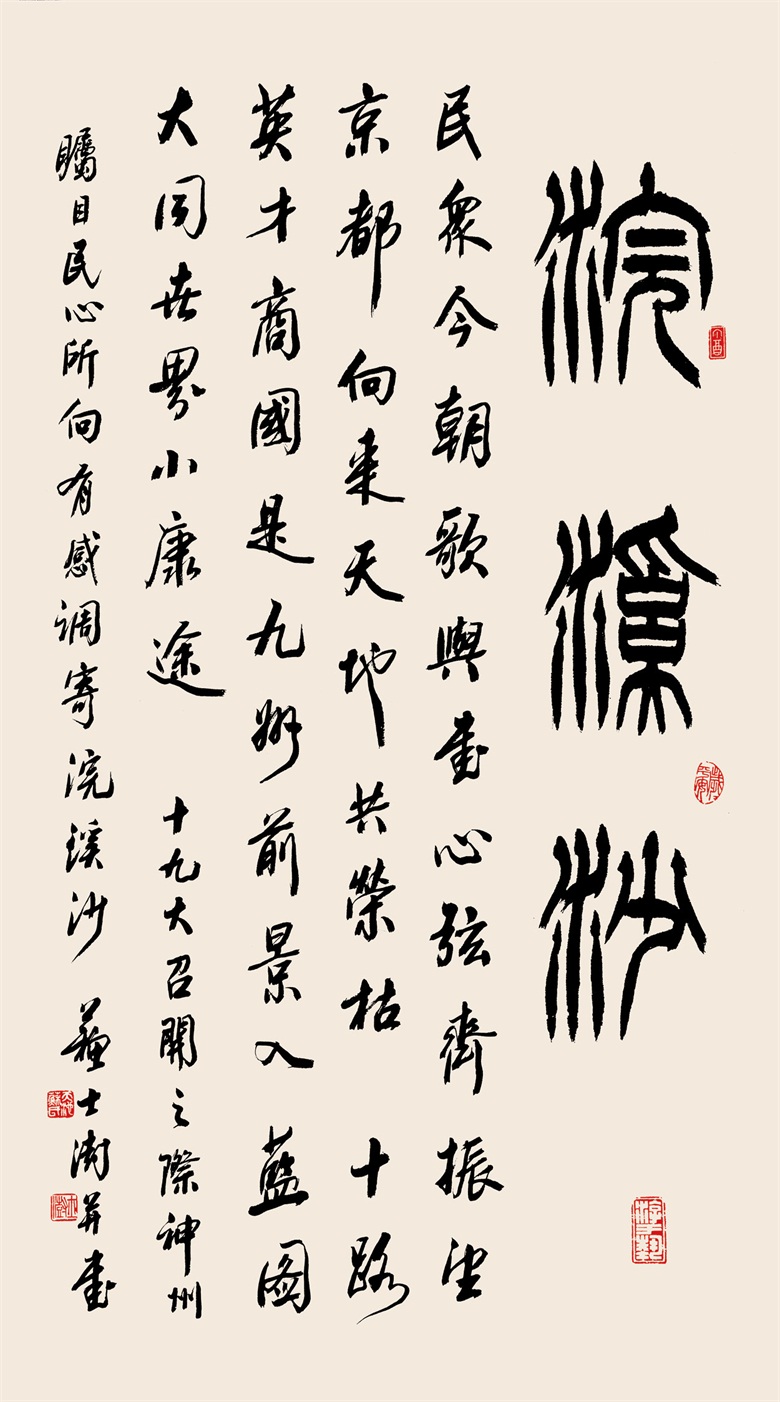 浣溪沙
民衆今朝歌與書心弦齊振望
京都向來天地共榮枯 十路
英才商國是九州前景入藍圖
大同世界小康途 十九大召開之際神州
矚目民心所向有感调寄浣溪沙 蘇士澍并書